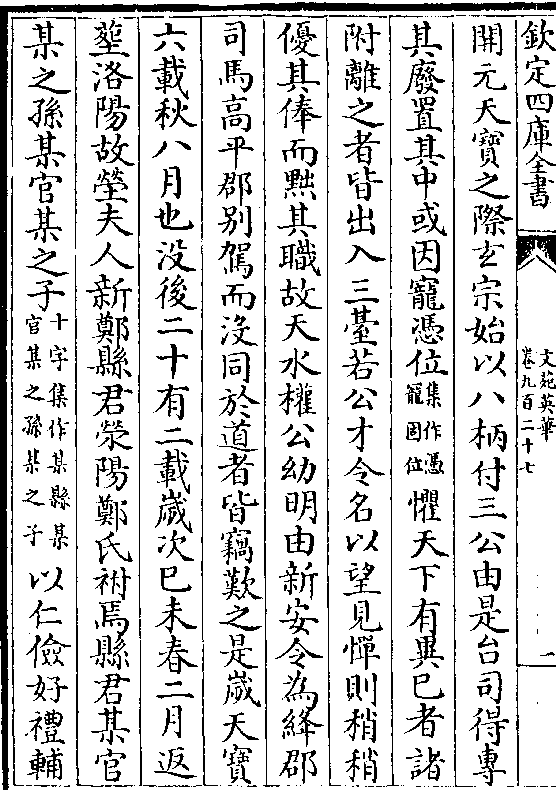 欽定四庫全書
文苑英華
卷九百二十七
一
開元天寶之際玄宗始以八柄付三公由是台司得專
其廢置其中或因寵憑位集作憑寵固位懼天下有異已者諸
附離之者皆出入三臺若公才令名以望見憚則稍稍
優其俸而黜其職故天水權公幼明由新安令為絳郡
司馬高平郡别駕而沒同於道者皆竊歎之是歲天寶
六載秋八月也没後二十有二載歲次巳未春二月返
塟洛陽故塋夫人新鄭縣君滎陽鄭氏祔焉縣君某官
某之孫某官某之子十字集作某縣某官某之孫某之子以仁儉好禮輔